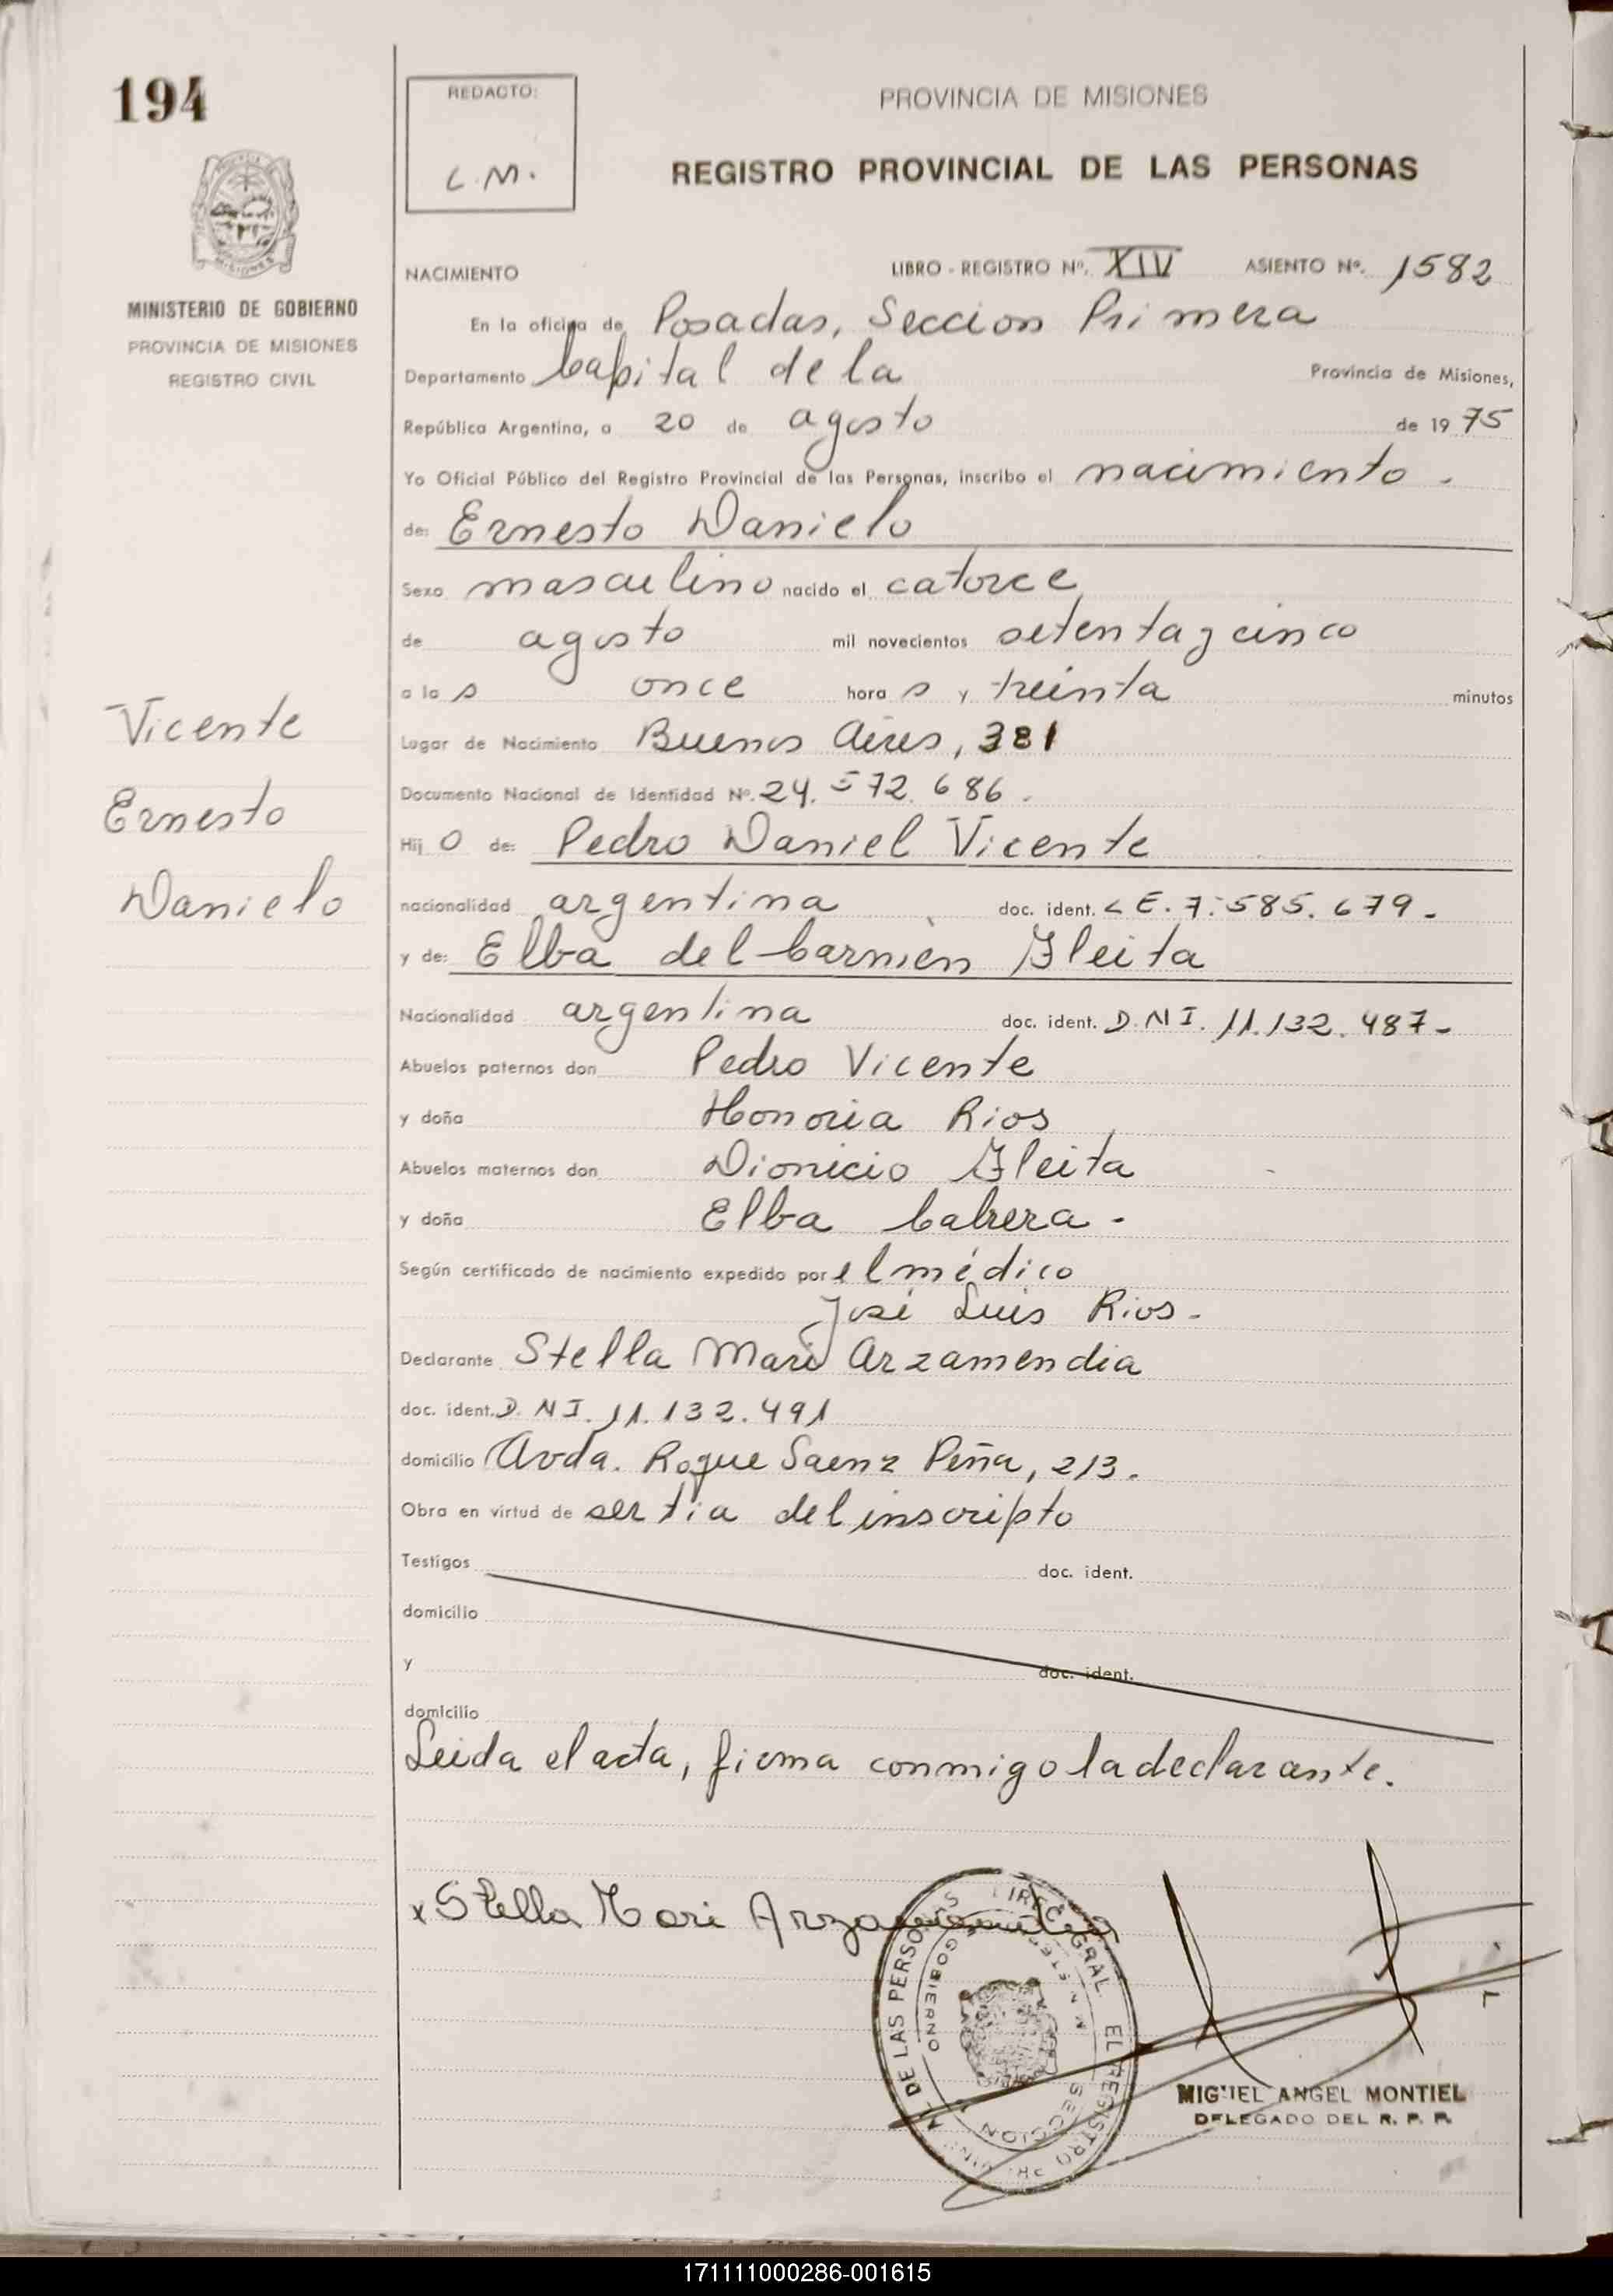 194
REDACTO:
L.M.
PROVINCIA DE MISIONES
REGISTRO PROVINCIAL DE LAS PERSONAS
MINISTERIO DE GOBIERNO
PROVINCIA DE MISIONES
REGISTRO CIVIL
NACIMIENTO LIBRO - REGISTRO Nº. XIV ASIENTO Nº. 1582
En la oficina de Posadas, Seccion Primera
Departamento Capital de la Provincia de Misiones,
República Argentina, a 20 de agosto de 1975
Yo Oficial Público del Registro Provincial de las Personas, inscribo el nacimiento -
de: Ernesto Danielo
Sexo masculino nacido el catorce
de agosto mil novecientos setenta y cinco
a las once horas y treinta minutos
Lugar de Nacimiento Buenos Aires, 381
Documento Nacional de Identidad Nº. 24.572.686.
Hijo de: Pedro Daniel Vicente
nacionalidad argentina doc. ident. L E. 7.585.679-
y de: Elba del Carmen Fleita
Nacionalidad argentina doc. ident. D.N I. 11.132.487-
Abuelos paternos don Pedro Vicente
y doña Honoria Rios
Abuelos maternos don Dionicio Fleita
y doña Elba Cabrera-
Según certificado de nacimiento expedido por el médico
José Luis Rios-
Declarante Stella Mari Arzamendia
doc. ident. D. N I. 11.132.491
domicilio Avda. Roque Saenz Peña, 213.
Obra en virtud de ser tia del inscripto
Testigos doc. ident.
domicilio
y doc. ident.
domicilio
Leida el acta, firma conmigo la declarante.
Vicente
Ernesto
Danielo
x Stella Mari Arzamendia
DE LAS PERSO
GRAL
EL REGISTRO
GOBIERNO
SECCION
MIGUEL ANGEL MONTIEL
DELEGADO DEL R. P. P.
171111000286-001615